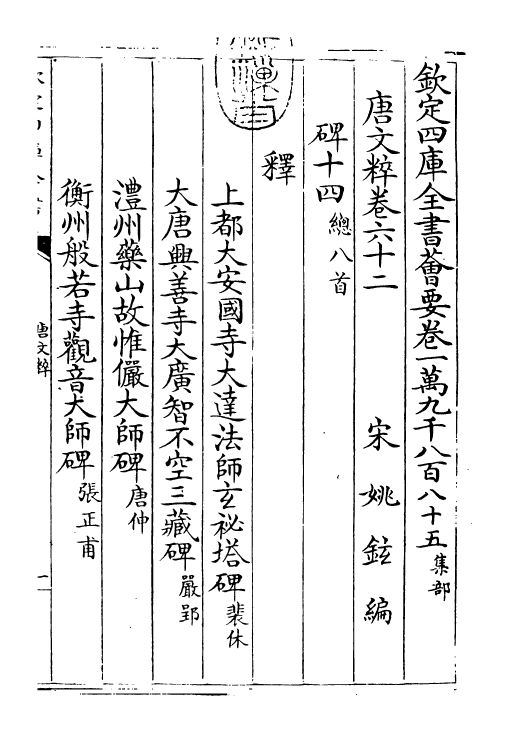 欽定四庫全書薈要卷一萬九千八百八十五集部
唐文粹卷六十二 宋 姚鉉 編
碑十四總八首
釋
上都大安國寺大達法師玄祕塔碑裴休
大唐興善寺大廣智不空三藏碑嚴郢
澧州藥山故惟儼大師碑唐仲
衡州般若寺觀音大師碑張正甫
唐文粹
一